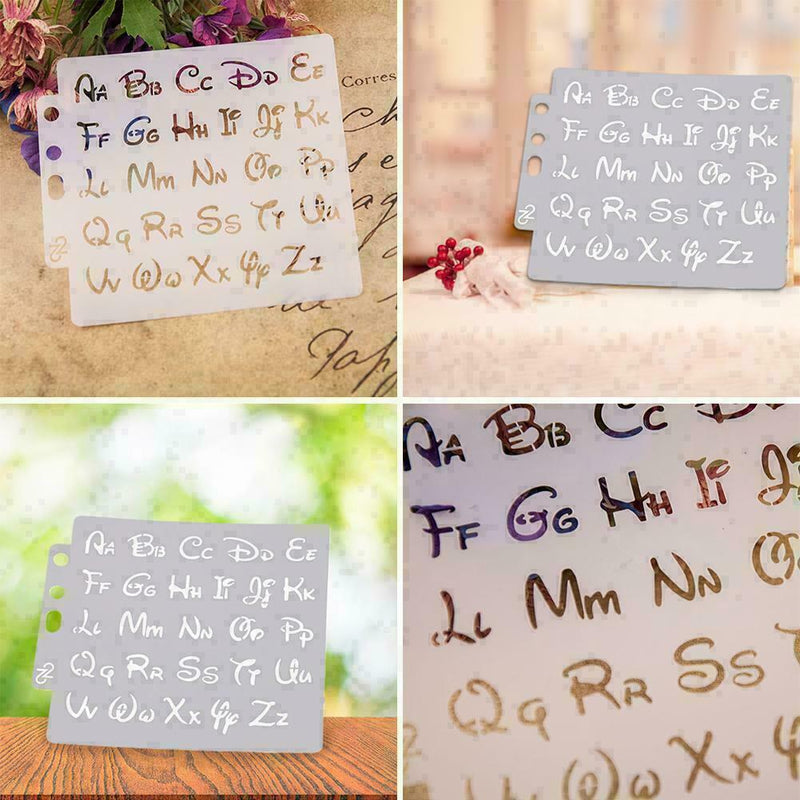 Aa Bb Cc Dd Ee
Ff Gg Hh Ii Jj Kk
Ll Mm Nn Oo Pp
Qq Rr Ss Tt Uu
Vv Ww Xx Yy Zz
Corres
Pap
Aa Bb Cc Dd Ee
Ff Gg Hh Ii Jj Kk
Ll Mm Nn Oo Pp
Qq Rr Ss Tt Uu
Vv Ww Xx Yy Zz
Aa Bb Cc Dd Ee
Ff Gg Hh Ii Jj Kk
Ll Mm Nn Oo Pp
Qq Rr Ss Tt Uu
Vv Ww Xx Yy Zz
Aa Bb Cc
Ff Gg Hh Ii
Ll Mm Nn
Qq Rr Ss
Ww Xx